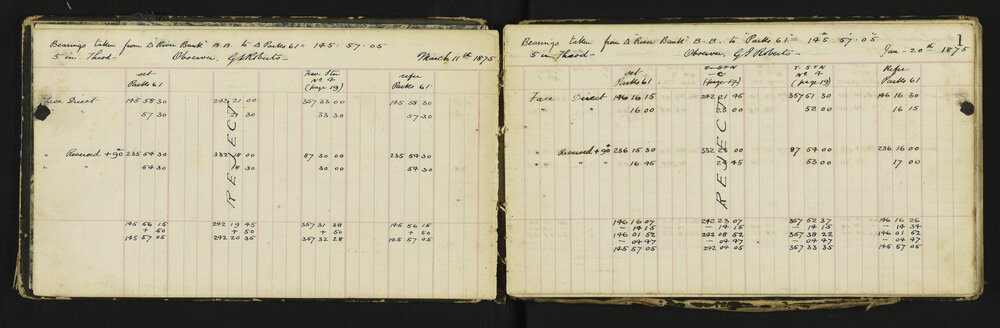 Bearings taken from Δ River Bank B.B. to Δ Parks 61 = 145 . 57 . 05
5 in. Theod — Observer, G.J. Roberts — March 11th 1875
set Parks 61 Trav. Stn No 4 (page 19) refer Parks 61
Face Direct 145 58 30 242 21 00 357 33 00 145 58 30
" " 57 30 30 33 30 57 30
" Reversed + 90° 235 54 30 332 18 00 87 30 00 235 54 30
" " 54 30 18 30 30 00 54 30
REJECT
145 56 15 242 19 45 357 31 38 145 56 15
+ 50 + 50 + 50 + 50
145 57 05 242 20 35 357 32 28 145 57 05
1
Bearings taken from Δ River Bank B.B. to Parks 61 = 145° 57' 05"
5 in. Theod — Observer, G.J. Roberts — Jan - 20th - 1875
set Parks 61 T. STN (page 17) T. STN No 4 (page 19) Refer Parks 61
Face Direct 146 16 15 242 21 45 357 51 30 146 16 30
" " 16 00 23 00 52 00 16 15
" Reversed + 90° 236 15 30 332 23 00 87 54 00 236 16 00
" " 16 45 24 45 53 00 17 00
REJECT
146 16 07 242 23 07 357 52 37 146 16 26
— 14 15 — 14 15 — 14 15 — 14 34
146 01 52 242 08 52 357 38 22 146 01 52
— 04 47 — 04 47 — 04 47 — 04 47
145 57 05 242 04 05 357 33 35 145 57 05